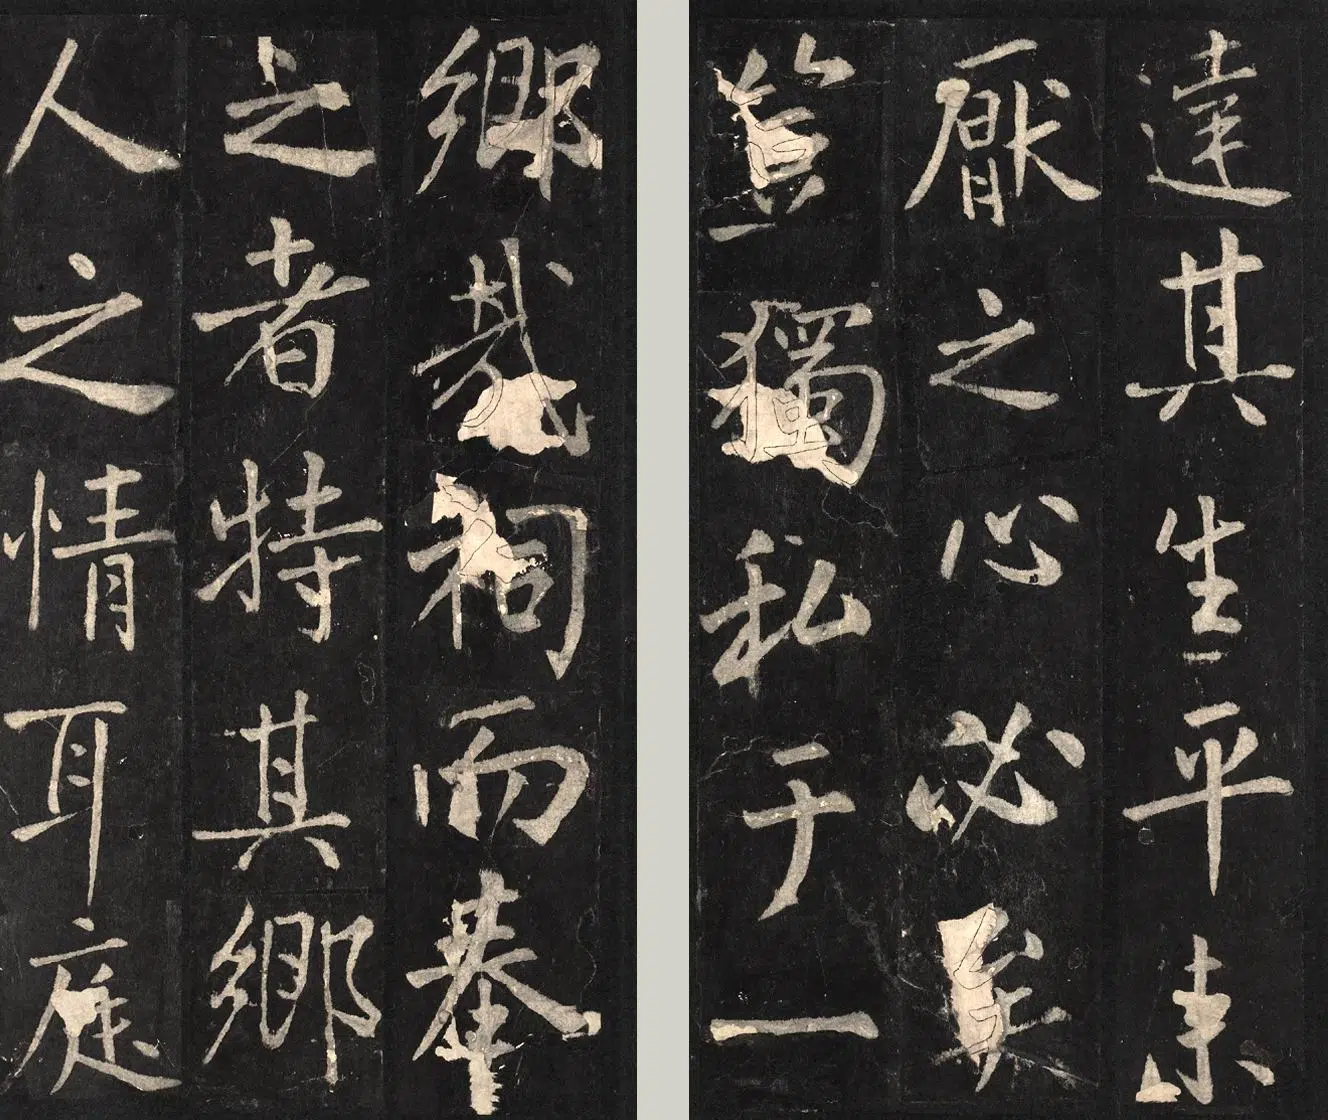 達其生平未
厭之心必矣
豈獨私于一
鄉哉祠而奉
之者特其鄉
人之情耳庭